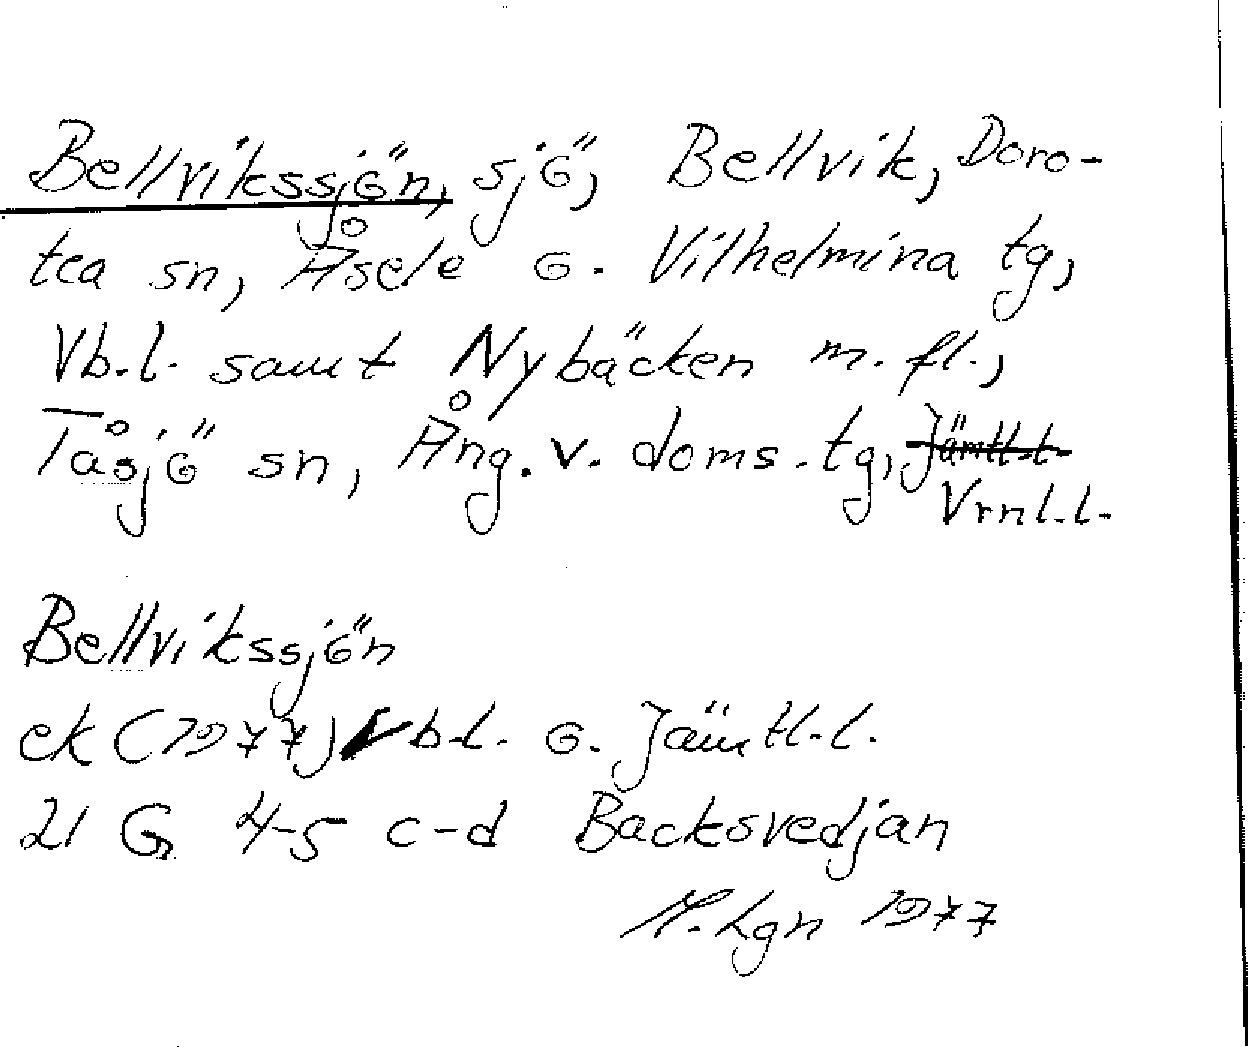 Bellvikssjön, sjö, Bellvik, Doro-
tea sn, Åsele o. Vilhelmina tg,
Vb.l. samt Nybäcken m.fl.,
Tåsjö sn, Ång.v.doms.tg, Jämtl.l.
Vrnl.l.
Bellvikssjön
ek (1977) Vb.l. o. Jämtl.l.
21 G 4-5 c-d Backsvedjan
Lgn 1977